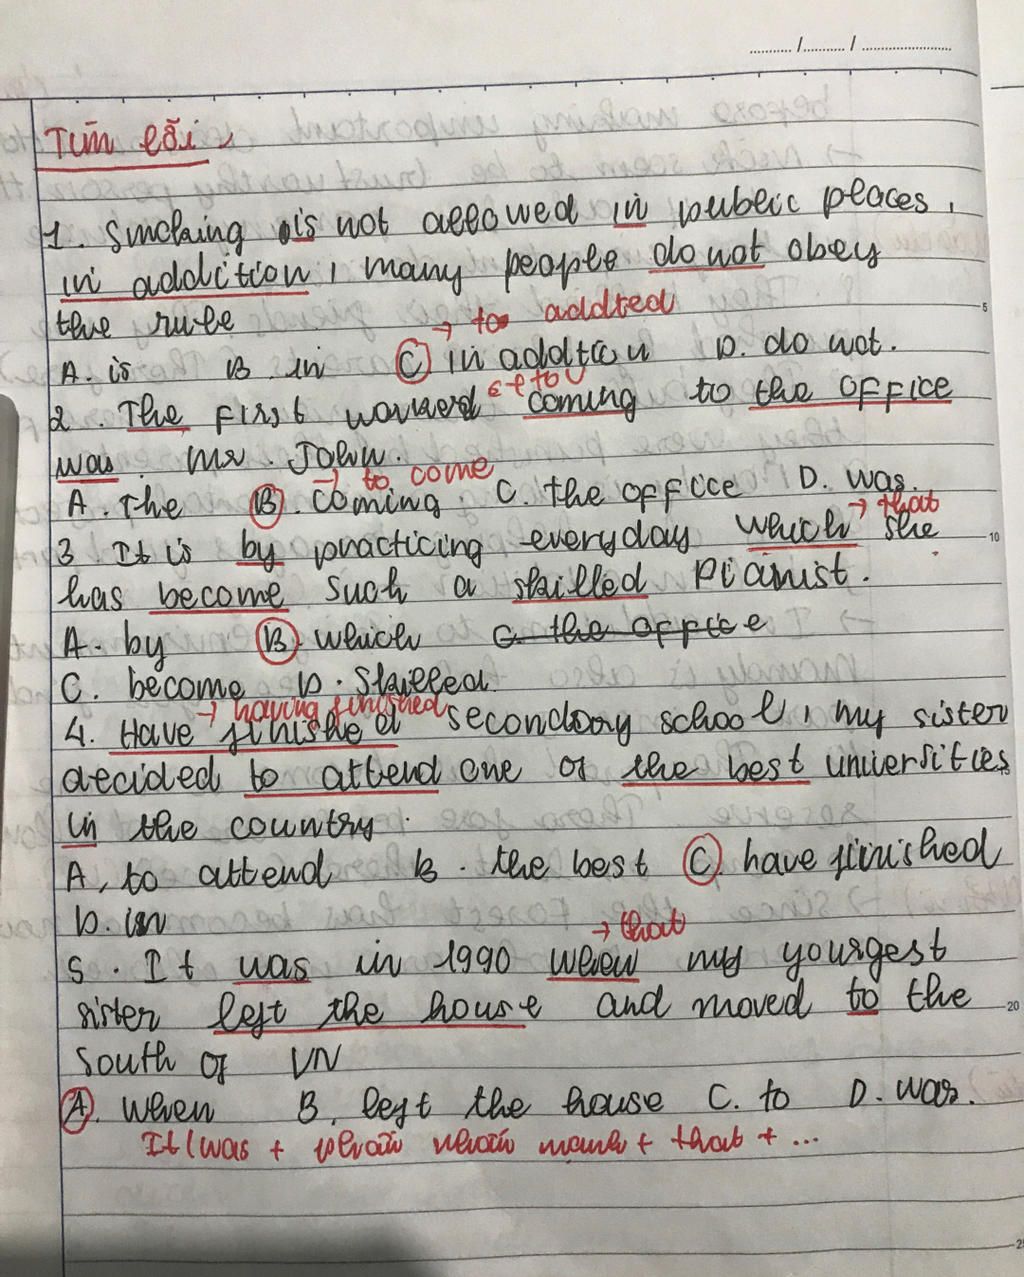 Tìm lỗi
1. Smoking is not allowed in public places,
in addition, many people do not obey
the rule
→ to addted
A. is B. in C in addtion D. do not.
2. The first worked coming to the office
was Mr. John.
→ to come
A. The B. coming C. the office D. was.
→ that
3 It is by practicing everyday which she
has become such a skilled pianist.
A. by B which C. the office
C. become D. Skilled.
→ having finished
4. Have finished secondary school, my sister
decided to attend one of the best universities
in the country.
A, to attend B. the best C have finished
D. in
→ that
5. It was in 1990 when my yourgest
sister left the house and moved to the
South of VN
A. when B. left the house C. to D. was.
It (was + phần nhấn mạnh + that + ...